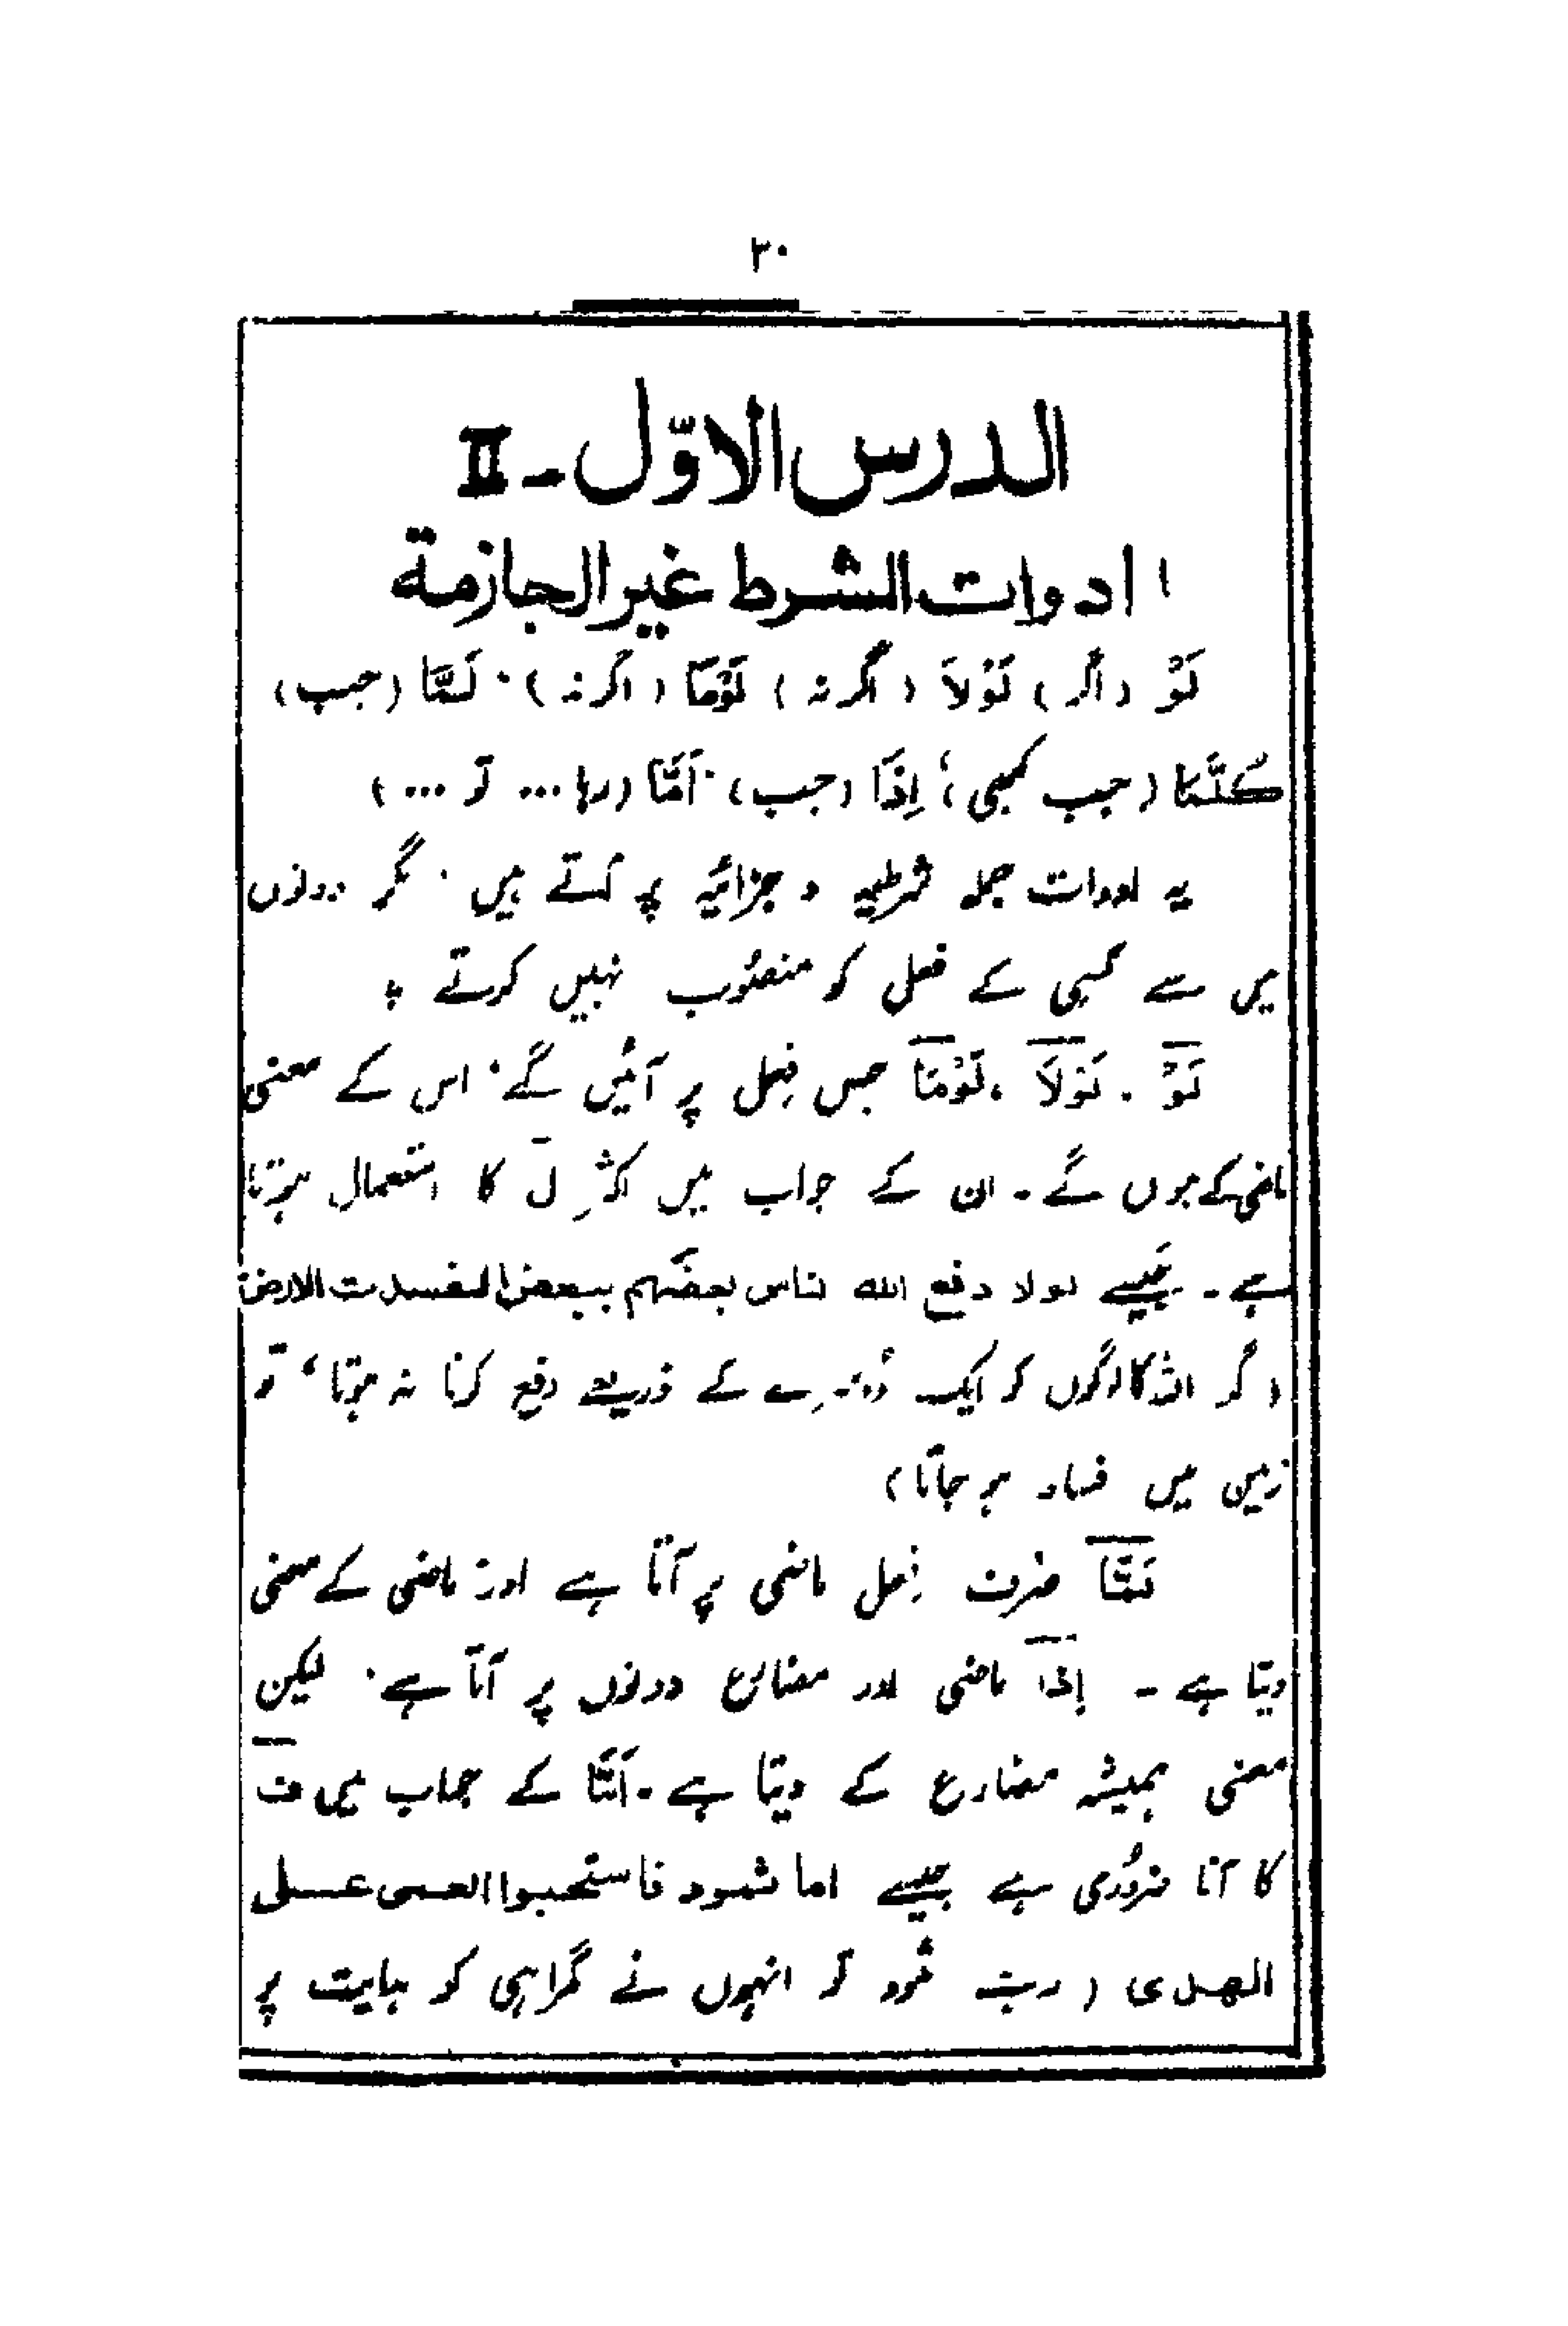 ۳۰
الدرس الاوّل - II
ادوات الشرط غیر الجازمة
لَوْ (اگر) لَوْلاَ (اگر نہ) لَوْمَا (اگر نہ)، لَمَّا (جب)
کُلَّمَا (جب کبھی)، اِذَا (جب)، اَمَّا (رہا ... تو ...)
یہ ادوات جملہ شرطیہ و جزائیہ پر آتے ہیں، مگر دونوں
میں سے کسی کے فعل کو منصوب نہیں کرتے ۔
لَوْ ، لَوْلاَ ، لَوْمَا جس فِعل پر آئیں گے، اس کے معنی
ماضی کے ہوں گے ۔ ان کے جواب میں اکثر لَ کا استعمال ہوتا
ہے ۔ جیسے لولا دفع الله الناس بعضَهم ببعض لفسدت الارض
(اگر اللہ کا لوگوں کو ایک دُوسرے کے ذریعے دفع کرنا نہ ہوتا، تو
زمین میں فساد ہو جاتا)
لَمَّا صرف فِعل ماضی پر آتا ہے اور ماضی کے معنی
دیتا ہے ۔ اِذَا ماضی اور مضارع دونوں پر آتا ہے، لیکن
معنی ہمیشہ مضارع کے دیتا ہے ۔ اَمَّا کے جواب میں ف
کا آنا ضرُوری ہے جیسے اما ثمود فاستحبوا العمی علی
الھدی ( رہے ثمُود تو انہوں نے گمراہی کو ہدایت پر